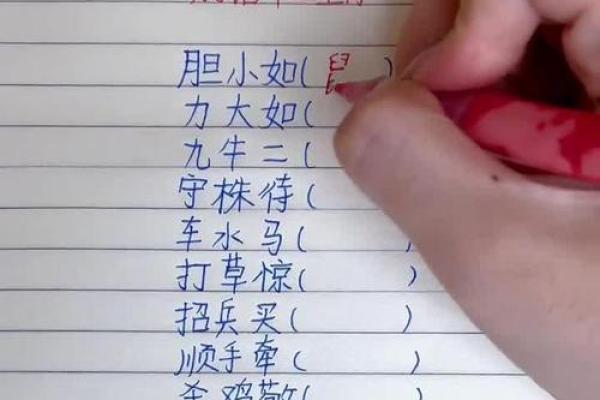 胆小如(鼠)
力大如(
九牛二(
守株待(
车水马(    )
打草惊(    )
招兵买(    )
顺手牵(    )
杀鸡敬(